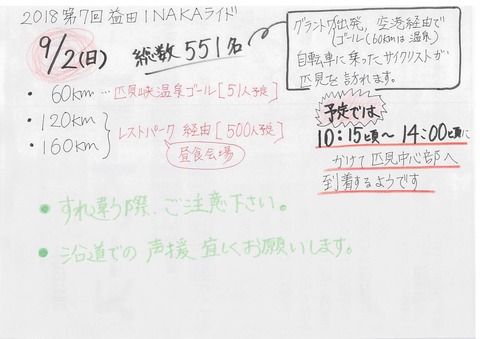 2018 第7回 益田 INAKAライド
9/2(日)
総数 551名
グラントワ出発，空港経由で
ゴール(60kmは温泉)
自転車に乗ったサイクリストが
匹見を訪れます。
・60km … 匹見峡温泉ゴール [51人予定]
・120km
・160km
レストパーク 経由 [500人予定]
昼食会場
予定では
10:15頃～14:00頃に
かけて匹見中心部へ
到着するようです
● すれ違う際、ご注意下さい。
● 沿道での 声援 宜しくお願いします。